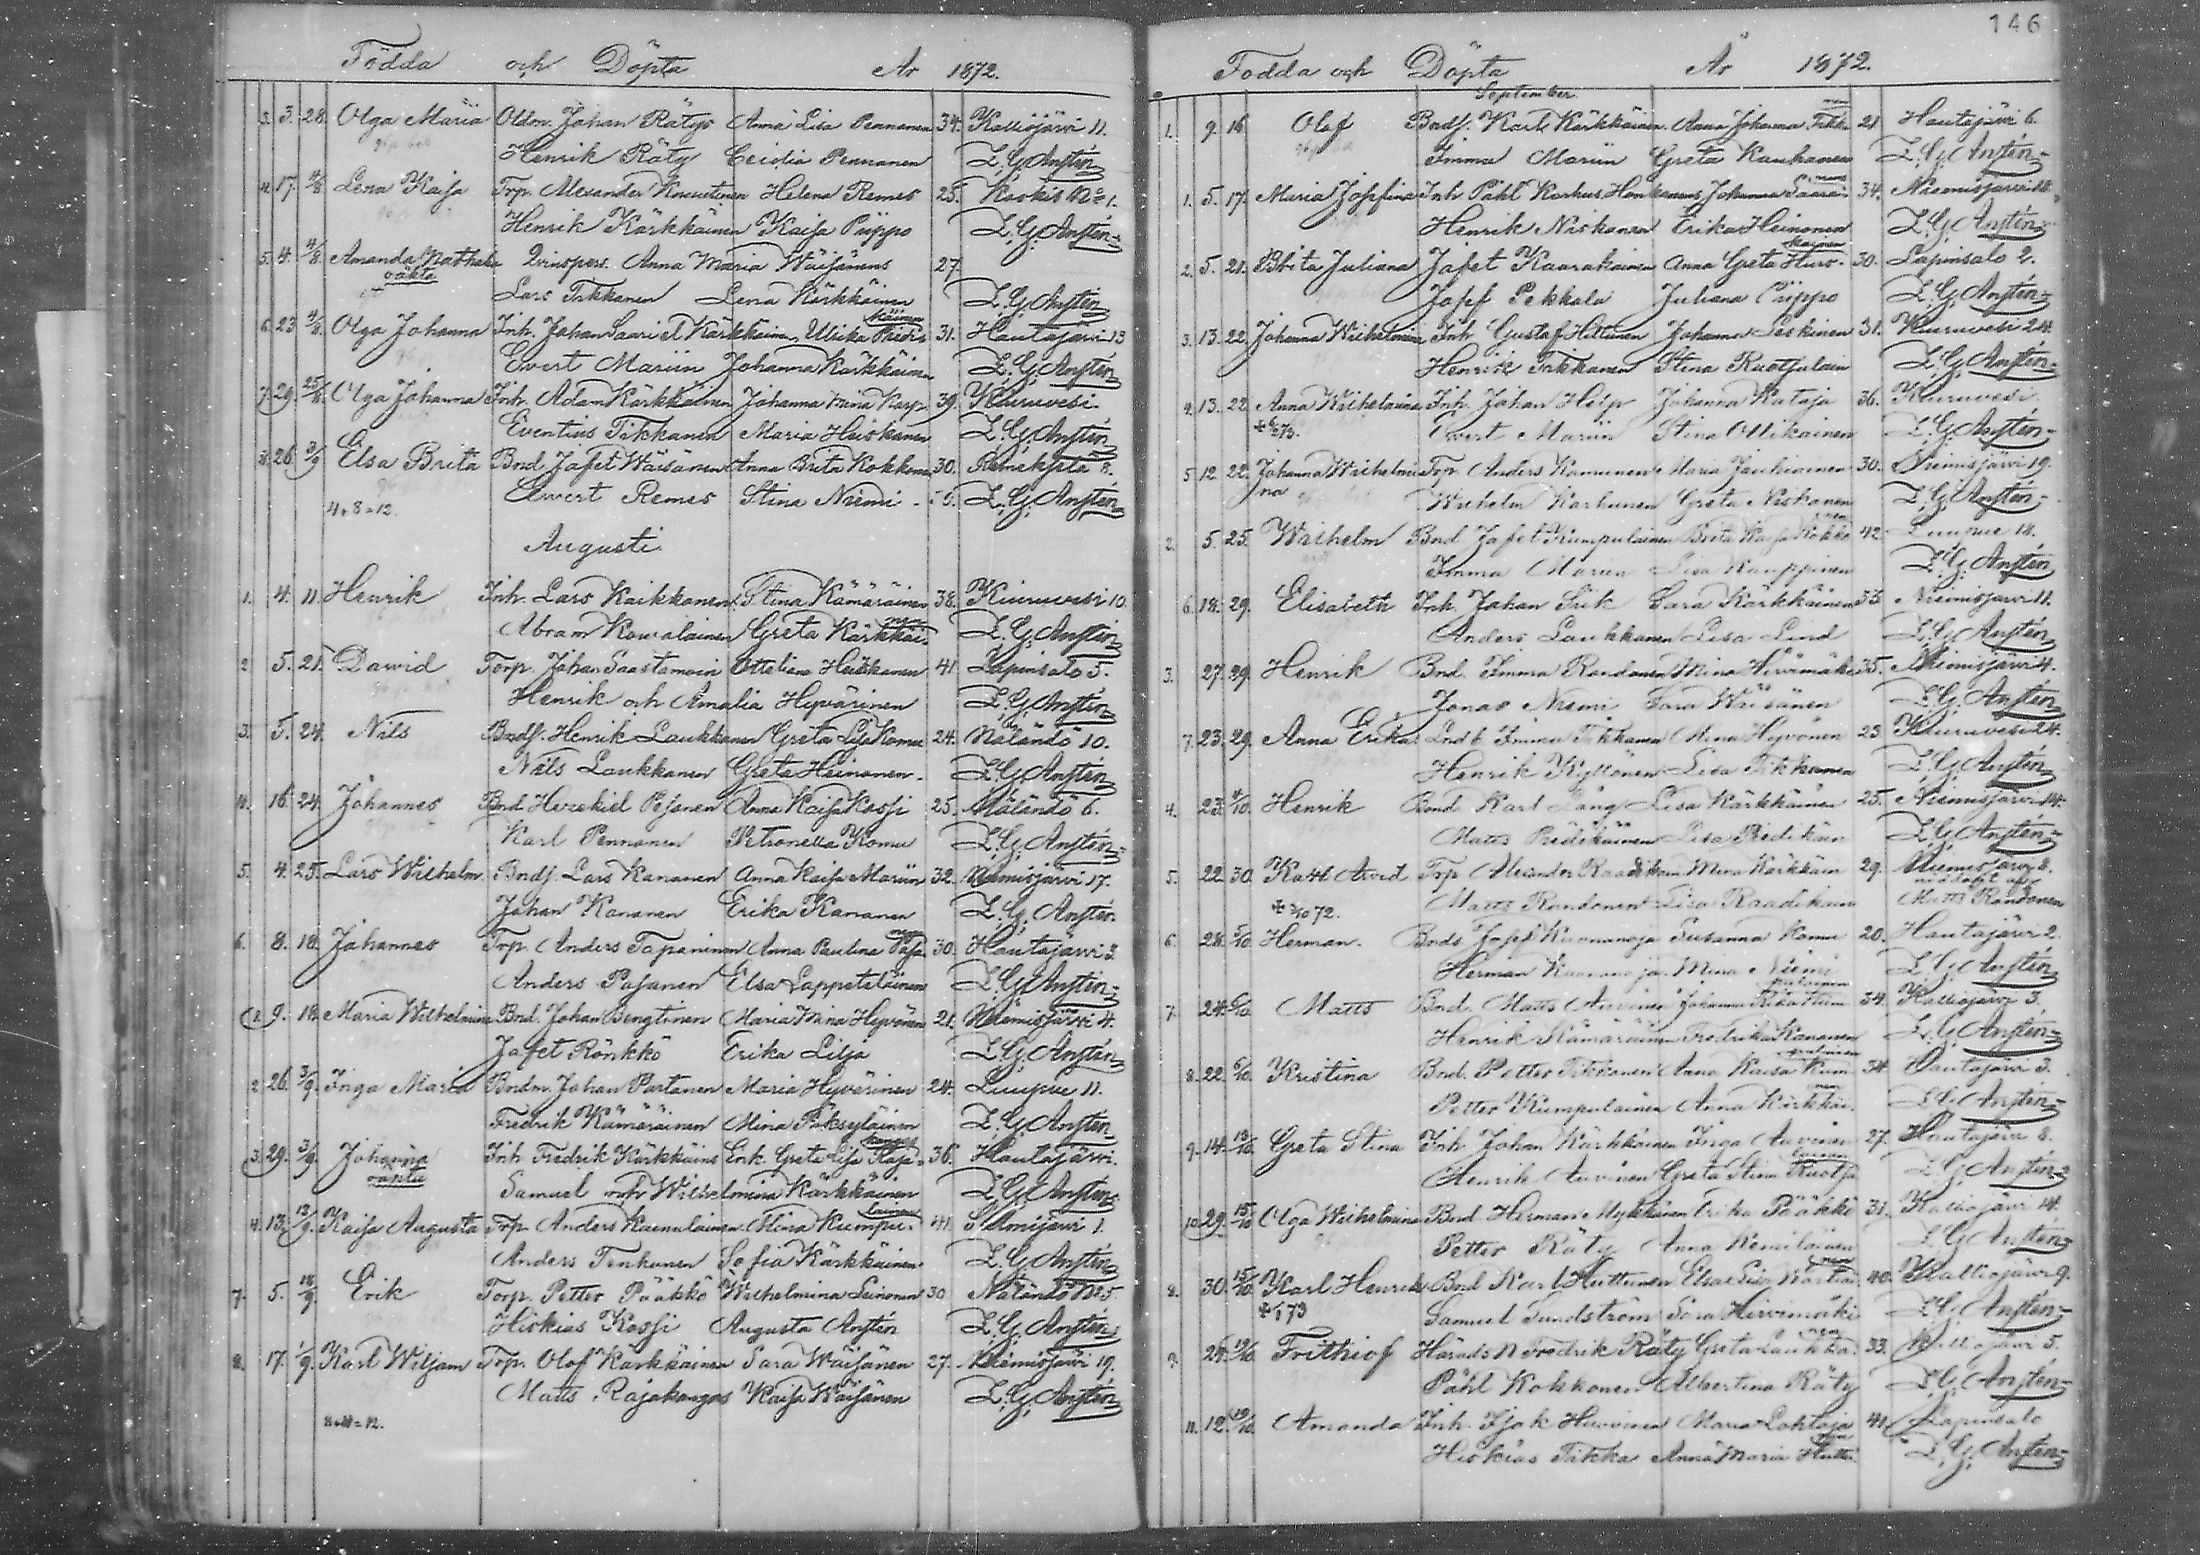 146
Födda och Döpta År 1872.
3. 3. 28. Olga Maria Oldm. Johan Rätys Anna Lisa Pennanen 34. Kalliojärvi 11.
Henrik Räty Ceidia Pennanen L. G. Anstén
4. 17. 4/8 Lena Kaisa Trp. Alexander Helena Remes 25. Koskis No 1.
Henrik Kärkkäinen Kaisa Piippo L. G. Anstén
5. 4. 4/8 Amanda Nathalia Qvinspers. Anna Maria Wäisänens 27.
oäkta
Lars Tikkanen Lena Kärkkäinen L. G. Anstén
6. 23. 4/8 Olga Johanna Inh. Johan Saariel Kärkkäinen Ulrika 31. Hautajärvi 13
Evert Mariin Johanna Kärkkäinen L. G. Anstén
7. 29. 25/8 Olga Johanna Inh. Adam Kärkkäinen Johanna Mina Karp. 39. Kiuruvesi
Eventius Tikkanen Maria Heiskanen L. G. Anstén
8. 26. 3/9 Elsa Brita Bnd. Jafet Wäisänen Anna Brita Kokkonen 30. Remäkylä 8.
Ewert Remes Stina Niemi L. G. Anstén
4+8=12.
Augusti
1. 4. 11. Henrik Inh. Lars Kaikkonen Stina Kämäräinen 38. Kiuruvesi 10.
Abram Kowalainen Greta Kärkkäinen L. G. Anstén
2. 5. 21. Dawid Torp. Johan Saastamoin Otteliana Heikkanen 41. Lapinsalo 5.
Henrik och Amalia Hyvärinen L. G. Anstén
3. 5. 24. Nils Bndf. Henrik Laukkanen Greta Lisa Komu 24. Näländö 10.
Nils Laukkanen Greta Heinonen L. G. Anstén
4. 16. 24. Johannes Bnd. Hezekiel Pesonen Anna Kaisa Kossi 25. Näländö 6.
Karl Pennanen Petronella Komu L. G. Anstén
5. 4. 25. Lars Wilhelm Bndf. Lars Kananen Anna Kaisa Mariin 32. Niemisjärvi 17.
Johan Kananen Erika Kananen L. G. Anstén
6. 8. 18. Johannes Trp. Anders Tapaninen Anna Paulina Pasanen 30. Hautajärvi 3.
Anders Pasanen Elsa Lappeteläinen L. G. Anstén
1. 9. 18. Maria Wilhelmina Bnd. Johan Bengtinen Maria Mina Hyvönen 21. Niemisjärvi 4.
Jafet Rönkkö Erika Lilja L. G. Anstén
2. 26. 3/9. Inga Maria Bndm. Johan Partanen Maria Hyvärinen 24. Luupue 11.
Fredrik Kämäräinen Mina Päksyläinen L. G. Anstén
3. 29. 3/9. Johanna Inh. Fredrik Kärkkäins Enk. Greta Lisa Rajakangas 36. Hautajärvi.
oäkta
Samuel och Wilhelmina Kärkkäinen L. G. Anstén
4. 13. 13/9. Kaisa Augusta Trp. Anders Kainulainen Mina Kumpulainen 41. Salmijärvi 1.
Anders Tenhunen Sofia Kärkkäinen L. G. Anstén
7. 5. Erik Torp. Petter Pääkkö Wilhelmina Leinonen 30 Näländö No 5
Hiskias Kossi Augusta Anstén L. G. Anstén
8. 17. 1/9. Karl Wiljam Trp. Olof Kärkkäinen Sara Wäisänen 27. Niemisjärvi 19.
Matts Rajakangas Kaisa Wäisänen L. G. Anstén
8+4=12.
Födda och Döpta År 1872.
September.
1. 9. 16 Olof Bndf. Karl Kärkkäinen Anna Johanna Tikkanen 21 Hautajärvi 6.
Imma Mariin Greta Kauhanen L. G. Anstén
1. 5. 17. Maria Josefina Inh. Påhl Markus Honkanens Johanna 34. Niemisjärvi 18.
Henrik Niskanen Erika Heinonen L. G. Anstén
2. 5. 21. Brita Juliana Jafet Kaarakainen Anna Greta Huskainen 30. Lapinsalo 2.
Josef Pekkala Juliana Piippo L. G. Anstén
3. 13. 22. Johanna Wilhelmina Inh. Gustaf Hiltunen Johanna Leskinen 31. Kiuruvesi 24.
Henrik Tikkanen Stina Ruotsalain L. G. Anstén
4. 13. 22. Anna Wilhelmina Inh. Johan Help Johanna Kataja 36. Kiuruvesi
Ewert Mariin Stina Ollikainen L. G. Anstén
5. 12. 22. Johanna Wilhelmina Trp. Anders Komunen Maria Jauhiainen 30. Niemisjärvi 19.
Wilhelm Karhunen Greta Niskanen L. G. Anstén
2. 5. 25. Wilhelm Bnd. Jafet Kumpulainen Brita Kaisa Kokkonen 42. Luupue 18.
Imma Mariin Lisa Kauppinen L. G. Anstén
6. 18. 29. Elisabeth Inh. Johan Sara Kärkkäinen 33 Niemisjärvi 11.
Anders Laukkanen Lisa Lind L. G. Anstén
3. 27. 29. Henrik Bnd. Imma Rondonen Mina Hirvimäki 35. Niemisjärvi 4.
Jonas Niemi Sara Wäisänen L. G. Anstén
7. 23. 29. Anna Erika Imma Tikkanen Mina Hyvönen 23. Kiuruvesi 24.
Henrik Kyllönen Lisa Tikkanen L. G. Anstén
4. 23. 4/10. Henrik Bnd Karl Lång Lisa Kärkkäinen 25. Niemisjärvi 14.
Matts Redikäinen Lisa Redikäin L. G. Anstén
5. 22. 30. Karl Arvid Trp. Alexander Raadikain Mina Kärkkäin 29. Niemisjärvi 8.
nöddöpt af
Matts Rondonen Lisa Raadikain Matts Rondonen
6. 28. 5/10 Herman. Bnds Josef Kuonanoja Susanna Komu 20. Hautajärvi 2.
Herman Kuonanoja Mina Niemi L. G. Anstén
7. 24. 6/10. Matts Bnd. Matts Auvinen Johanna Rika Kumpulainen 34. Kalliojärvi 3.
Henrik Kämäräinen Fredrika Kananen L. G. Anstén
8. 22. 6/10. Kristina Bnd. Petter Tikkanen Anna Kaisa Kumpulainen 34 Hautajärvi 3.
Petter Kumpulainen Anna Kärkkäinen L. G. Anstén
9. 14. 13/10. Greta Stina Inh. Johan Kärkkäinen Inga Auvinen 27. Hautajärvi 8.
Henrik Auvinen Greta Stina Ruotsalainen L. G. Anstén
10. 29. 15/10 Olga Wilhelmina Bnd Herman Mykkänen Erika Pääkkö 31. Kalliojärvi 14.
Petter Räty Anna Kemiläinen L. G. Anstén
8. 30. 15/10. Karl Henrik Bnd Karl Huttunen Elsa Lisa 40. Kalliojärvi 9.
Samuel Sundström Sara Hirvimäki L. G. Anstén
9. 24. Frithiof Härads N Fredrik Räty Greta Laukkanen 33. Kalliojärvi 5.
Påhl Kokkonen Albertina Räty L. G. Anstén
11. 12. Amanda Inh. Isak Huovinen Maria Lohtaja 41. Lapinsalo
Hiskias Tikka Anna Maria L. G. Anstén